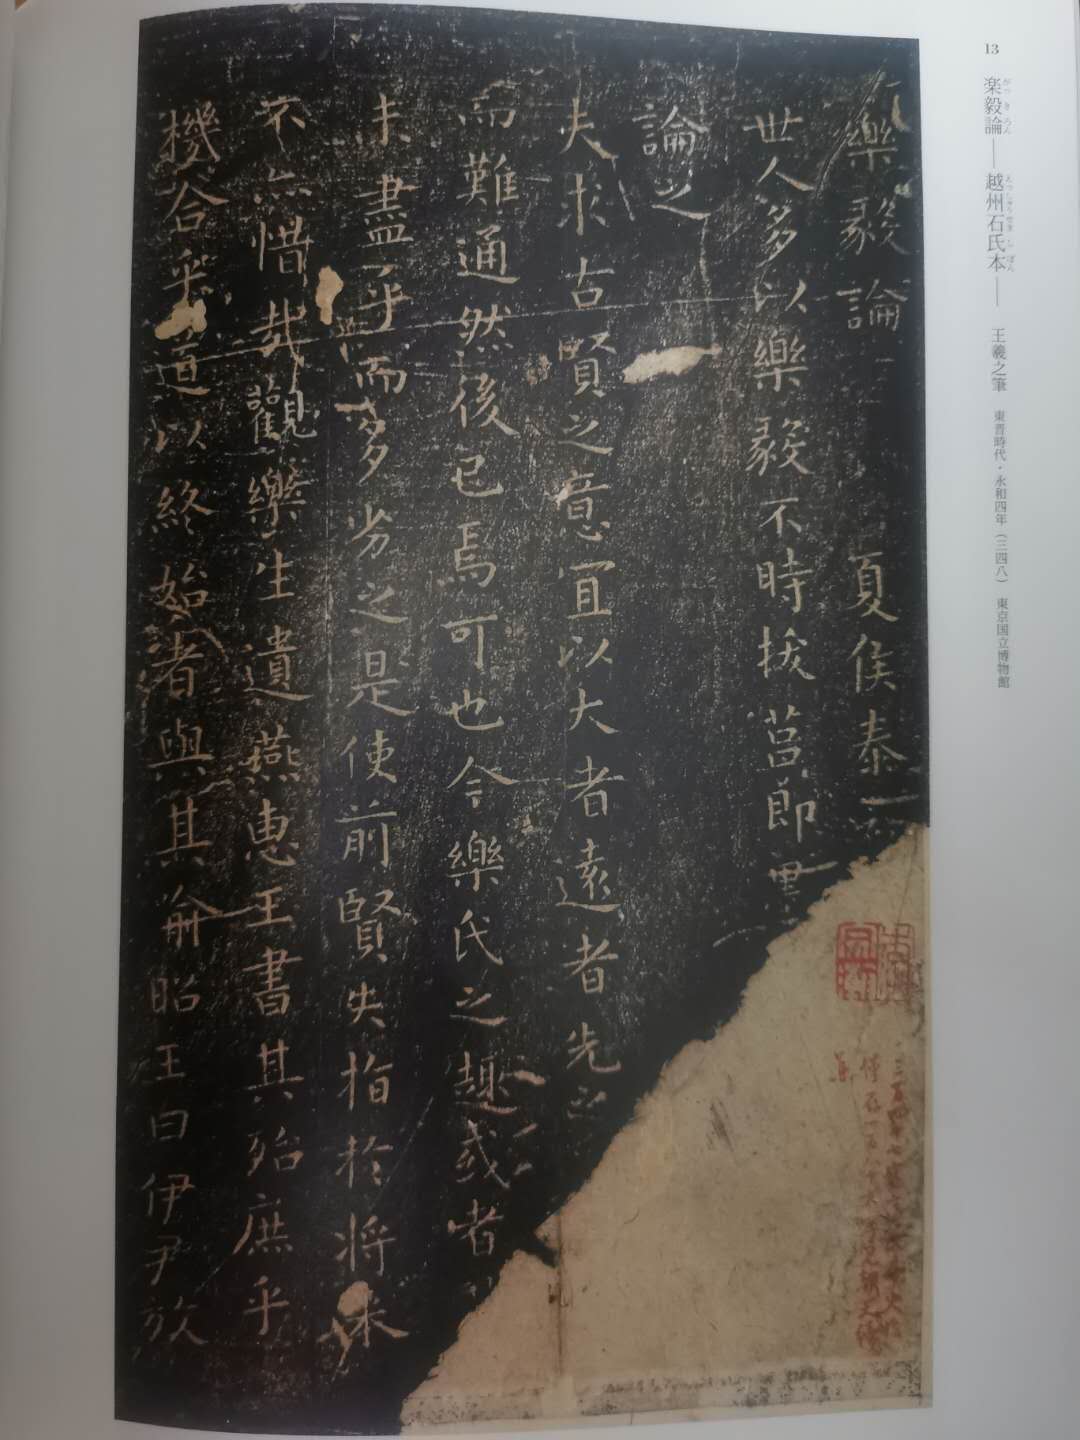 13
楽毅論――越州石氏本――　王羲之筆　東晋時代・永和四年（三四八）　東京国立博物館
がっきろん　えっしゅうせきしぼん
樂毅論　夏侯泰
世人多以樂毅不時拔莒即墨
論之
夫求古賢之意宜以大者遠者先
而難通然後已焉可也今樂氏之趣或者
未盡乎而多劣之是使前賢失指於將來
不亦惜哉觀樂生遺燕惠王書其殆庶乎
機合乎道以終始者與其喻昭王曰伊尹放